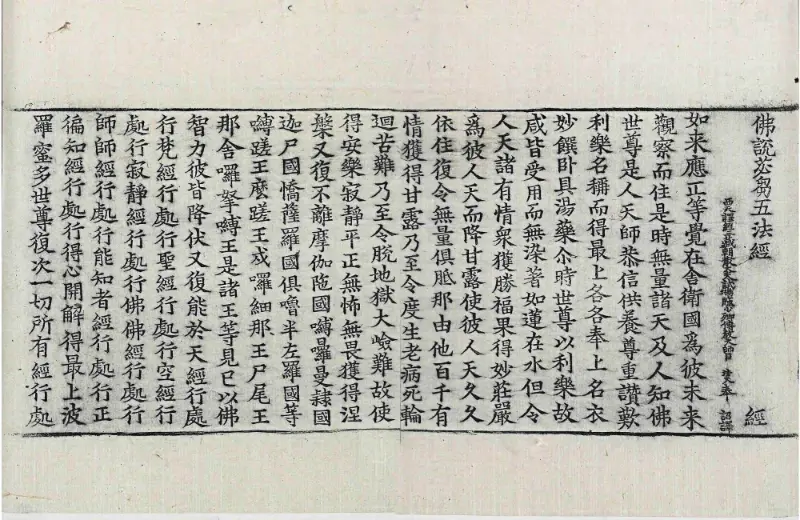 佛說苾芻五法經 經
西天譯經三藏朝散大夫試鴻臚少卿傳教大師臣法天奉 詔譯
如来應正等覺在舍衛國為彼未来
觀察而住是時無量諸天及人知佛
世尊是人天師恭信供養尊重讚歎
利樂名稱而得最上各各奉上名衣
妙饌卧具湯藥尒時世尊以利樂故
咸皆受用而無染著如蓮在水但令
人天諸有情衆獲勝福果得妙莊嚴
為彼人天而降甘露使彼人天久久
依住復令無量俱胝那由他百千有
情獲得甘露乃至令度生老病死輪
迴苦難乃至令脫地獄大嶮難故使
得安樂寂静平正無怖無畏獲得涅
槃又復不離摩伽陁國嚩囉曼隷國
迦尸國憍薩羅國俱嚕半左羅國等
嚩蹉王麽蹉王戍囉細那王尸尾王
那舍囉拏嚩王是諸王等見已以佛
智力彼皆降伏又復能於天經行處
行梵經行處行聖經行處行空經行
處行寂静經行處行佛佛經行處行
師師經行處行能知者經行處行正
徧知經行處行得心開解得最上波
羅蜜多世尊復次一切所有經行處